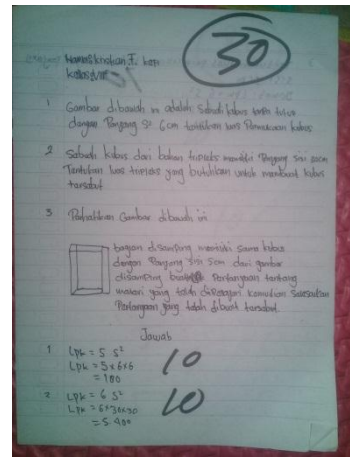 30
Nama
kelas
1 Gambar dibawah ini adalah Sebuah kubus tanpa tutup
dengan Panjang S² 6cm tentukan luas Permukaan kubus
2 Sebuah kubus dari bahan tripleks memiliki Panjang sisi 30cm
Tentukan luas tripleks yang butuhkan untuk membuat kubus
tersebut
3 Perhatikan Gambar dibawah ini
bagian disamping memiliki kubus
dengan Panjang sisi 5cm dari gambar
disamping Pertanyaan tentang
materi yang telah diPelajari kemudian selesaikan
Pertanyaan yang telah dibuat tersebut
Jawab
1 Lpk = 5 S²
Lpk = 5x6x6
= 180
10
2 Lpk = 6 S²
Lpk = 6x30x30
= 5.400
10